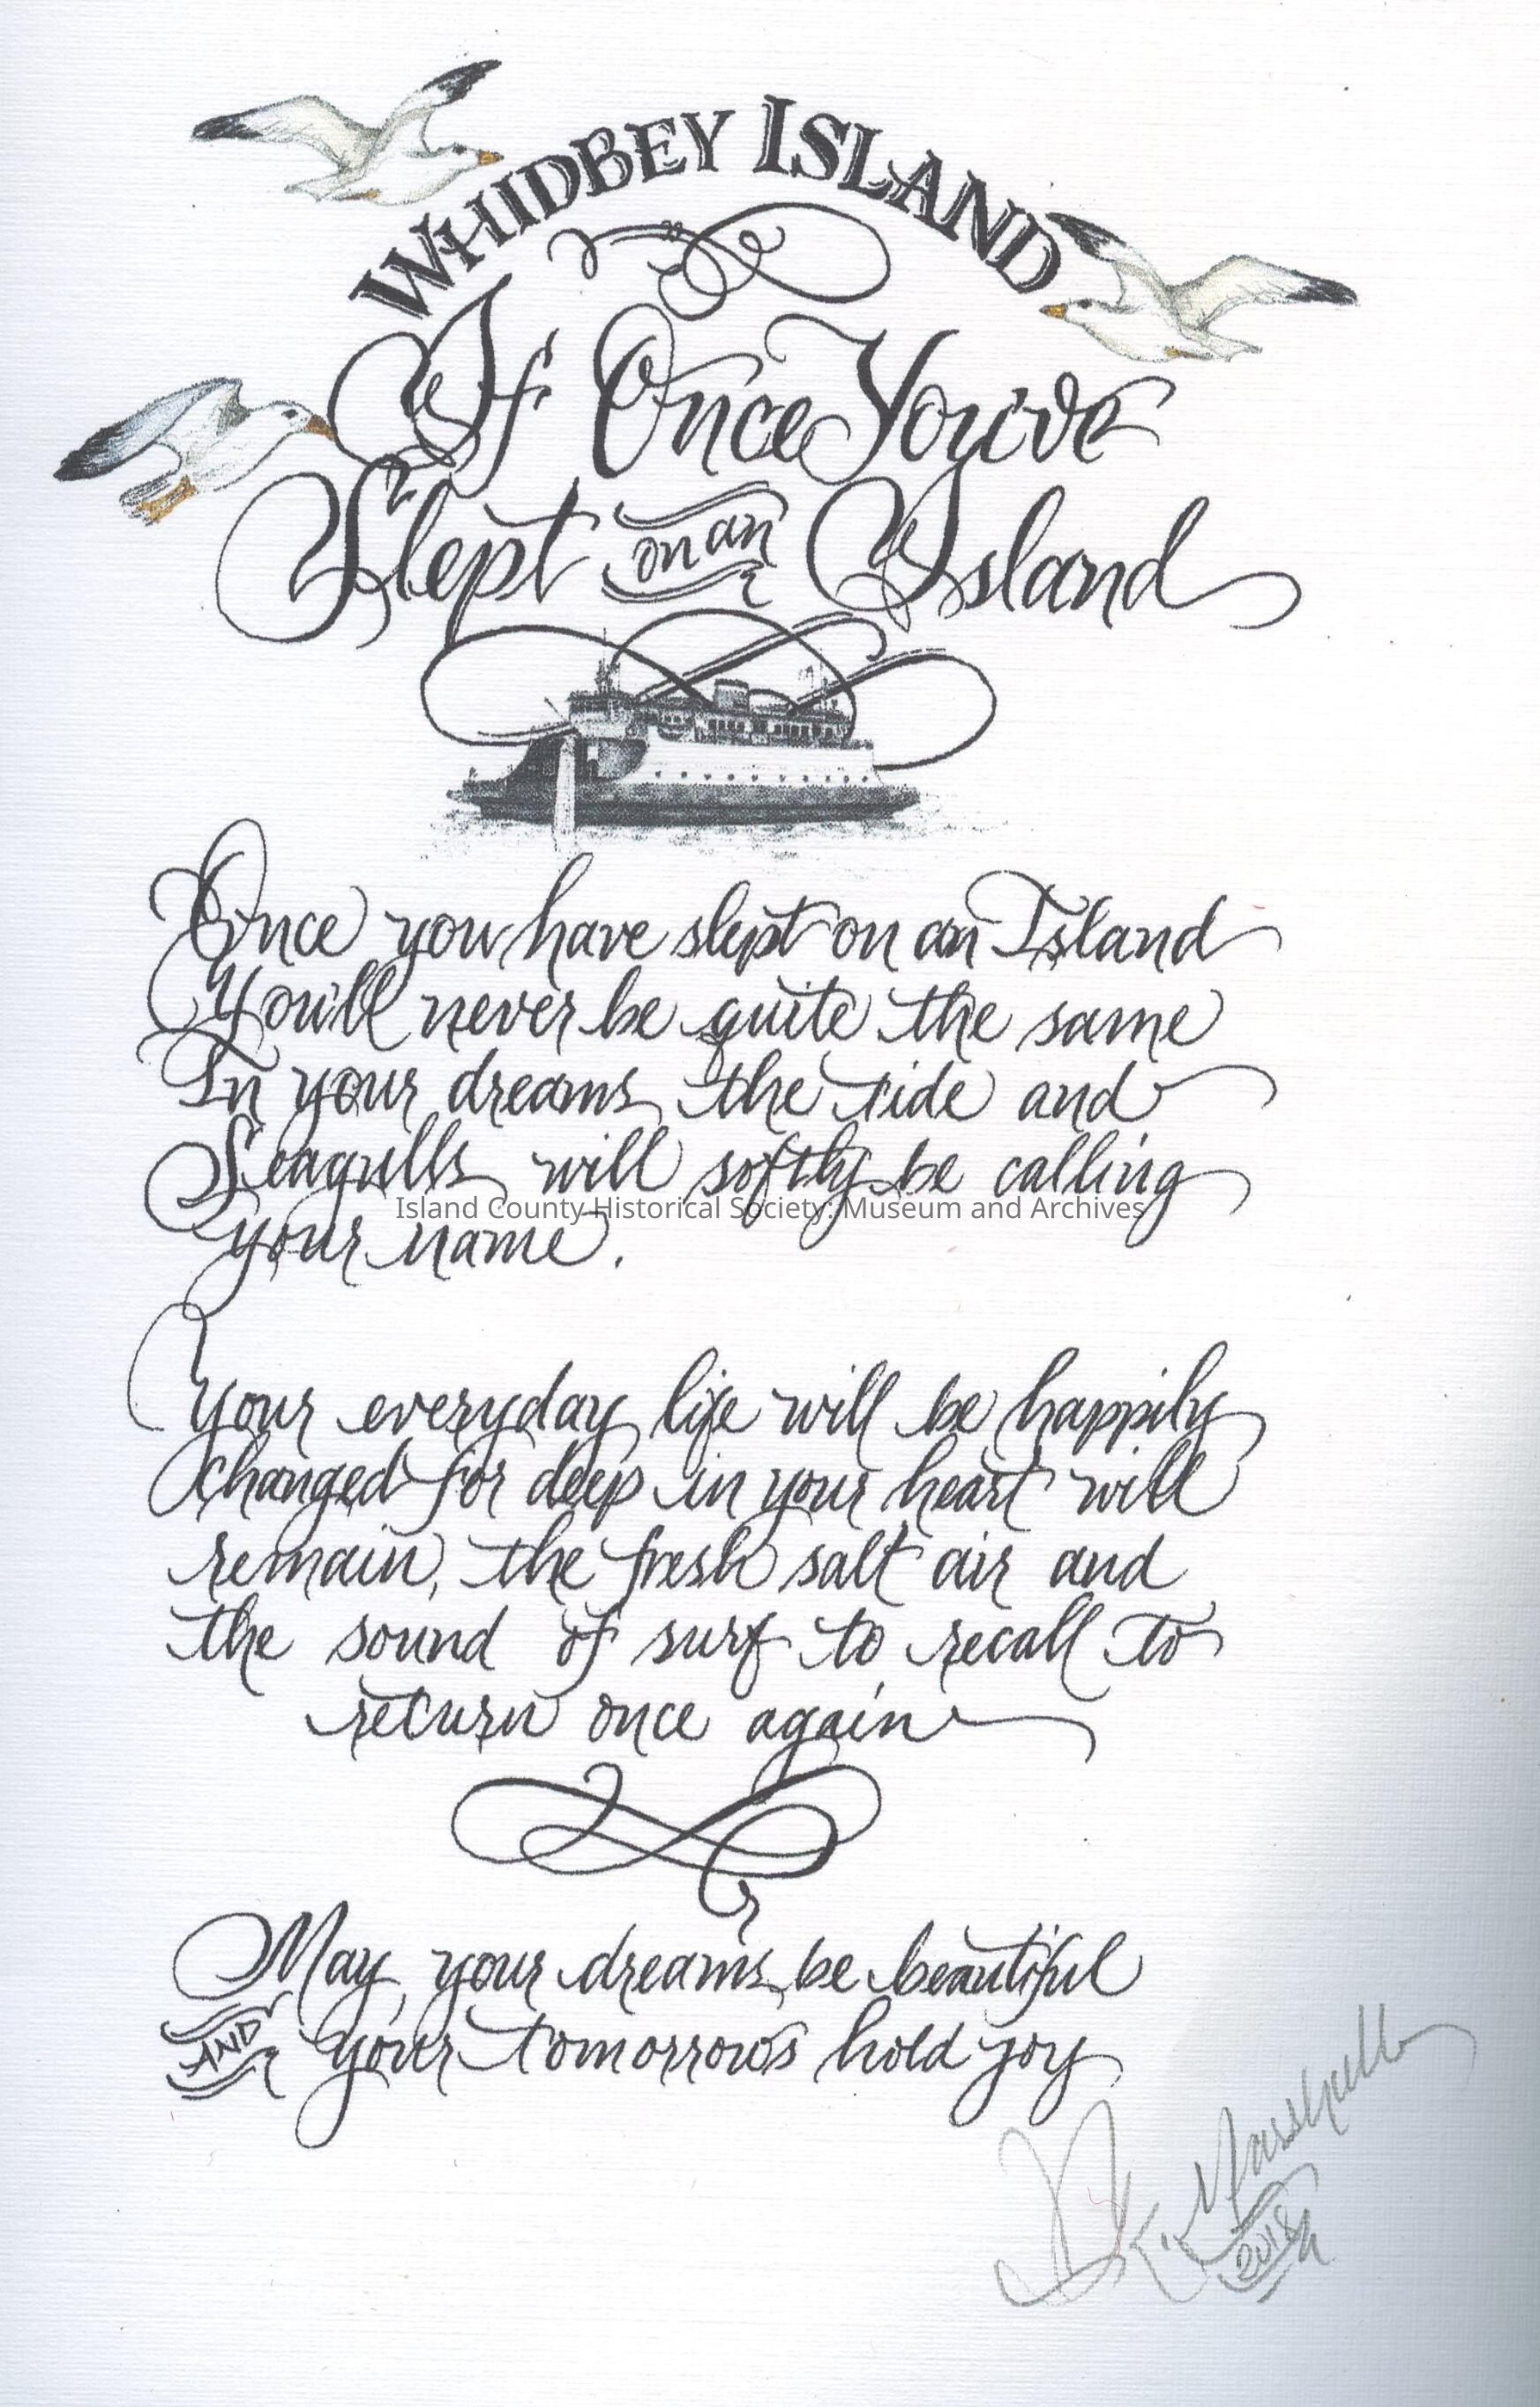 WHIDBEY ISLAND
If Once You've
Slept on an Island
Once you have slept on an Island
You'll never be quite the same
In your dreams the tide and
Seagulls will softly be calling
Island County Historical Society: Museum and Archives
your name.
Your everyday life will be happily
changed for deep in your heart will
remain, the fresh salt air and
the sound of surf to recall to
return once again
May your dreams be beautiful
AND your tomorrows hold joy
2018